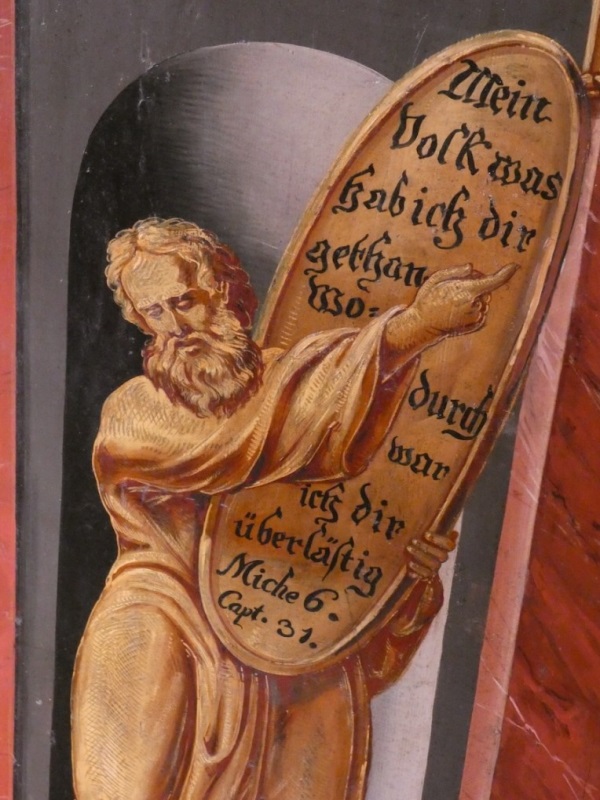 Mein
Volk was
hab ich dir
gethan
wo=
durch
war
ich dir
überlästig
Miche 6.
Capt. 31.